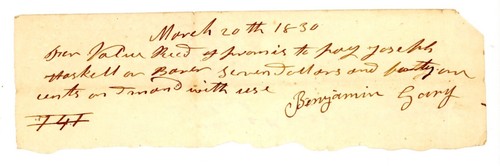 March 20th 1830
For Value Recd I promis to pay Joseph
Haskell or Barer Seven dollars and forty one
cents on dmand with use
Benjamin Gary
741